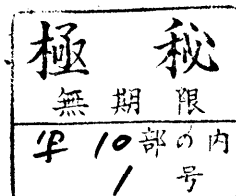 極秘
無期限
10部の内
1号